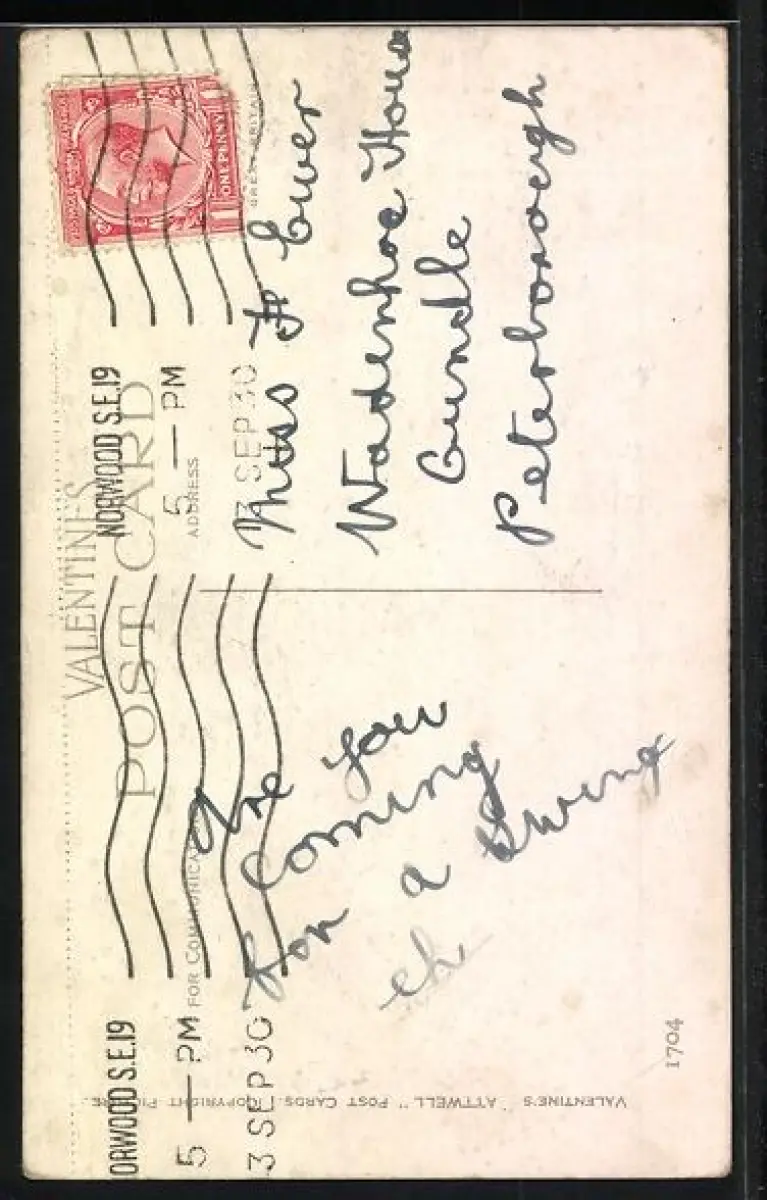 VALENTINES
POST CARD
FOR COMMUNICA
ADDRESS
NORWOOD S.E.19
5 — PM
13 SEP 30
ORWOOD S.E.19
5 — PM
3 SEP 30
ONE PENNY
Are you
coming
for a swing
eh
Miss F Ewer
Wadenhoe House
Oundle
Peterborough
VALENTINE'S "ATTWELL" POST CARDS. COPYRIGHT PICTURE.
1704